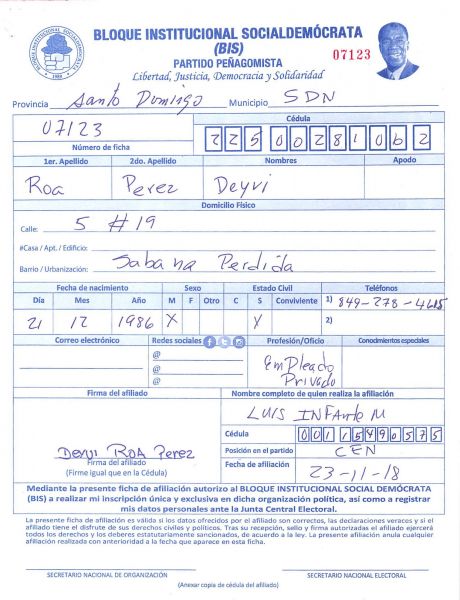 BLOQUE INSTITUCIONAL SOCIALDEMÓCRATA
(BIS)
PARTIDO PEÑAGOMISTA
07123
Libertad, Justicia, Democracia y Solidaridad
Provincia Santo Domingo Municipio SDN
07123
Número de ficha
Cédula
22500281062
1er. Apellido 2do. Apellido Nombres Apodo
Roa Perez Deyvi
Domicilio Físico
Calle: 5 #19
#Casa / Apt. / Edificio:
Barrio / Urbanización: Sabana Perdida
Fecha de nacimiento Sexo Estado Civil Teléfonos
Día Mes Año M F Otro C S Conviviente 1) 849-278-4615
21 12 1986 X X 2)
Correo electrónico Redes sociales Profesión/Oficio Conocimientos especiales
@
@
@
Empleado
Privado
Firma del afiliado Nombre completo de quien realiza la afiliación
LUIS INFANTE M
Cédula 00115490575
Deyvi Roa Perez
Firma del afiliado
(Firme igual que en la Cédula)
Posición en el partido CEN
Fecha de afiliación 23-11-18
Mediante la presente ficha de afiliación autorizo al BLOQUE INSTITUCIONAL SOCIAL DEMÓCRATA
(BIS) a realizar mi inscripción única y exclusiva en dicha organización política, así como a registrar
mis datos personales ante la Junta Central Electoral.
La presente ficha de afiliación es válida si los datos ofrecidos por el afiliado son correctos, las declaraciones veraces y si el
afiliado tiene el disfrute de sus derechos civiles y políticos. Tras su recepción, sello y firma autorizados el afiliado ejercerá
todos los derechos y los deberes estatutariamente sancionados, de acuerdo a la ley. La presente afiliación anula cualquier
afiliación realizada con anterioridad a la fecha que aparece en esta ficha.
SECRETARIO NACIONAL DE ORGANIZACIÓN SECRETARIO NACIONAL ELECTORAL
(Anexar copia de cédula del afiliado)